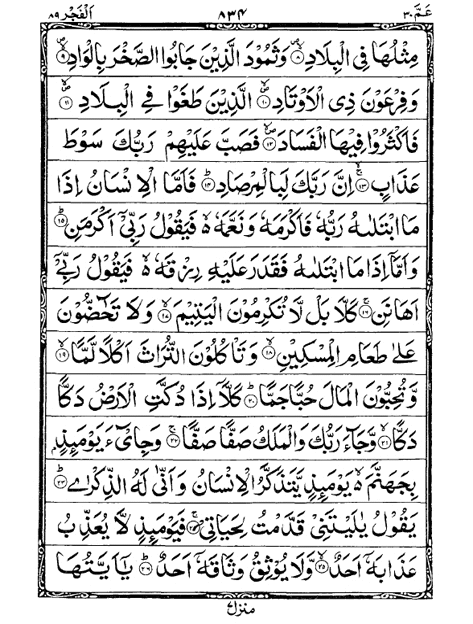 عَمَّ ٣٠ ٨٣٤ اَلْفَجْر ٨٩
مِثْلُهَا فِى الْبِلَادِ ۝٨ وَثَمُوْدَ الَّذِيْنَ جَابُوا الصَّخْرَ بِالْوَادِ ۝٩
وَفِرْعَوْنَ ذِى الْاَوْتَادِ ۝١٠ الَّذِيْنَ طَغَوْا فِى الْبِلَادِ ۝١١
فَاَكْثَرُوْا فِيْهَا الْفَسَادَ ۝١٢ فَصَبَّ عَلَيْهِمْ رَبُّكَ سَوْطَ
عَذَابٍ ۝١٣ اِنَّ رَبَّكَ لَبِالْمِرْصَادِ ۝١٤ فَاَمَّا الْاِنْسَانُ اِذَا
مَا ابْتَلٰىهُ رَبُّهٗ فَاَكْرَمَهٗ وَنَعَّمَهٗ ەۙ فَيَقُوْلُ رَبِّىْٓ اَكْرَمَنِ ۝١٥
وَاَمَّاۤ اِذَا مَا ابْتَلٰىهُ فَقَدَرَ عَلَيْهِ رِزْقَهٗ ەۙ فَيَقُوْلُ رَبِّىْٓ
اَهَانَنِ ۝١٦ كَلَّا بَلْ لَّا تُكْرِمُوْنَ الْيَتِيْمَ ۝١٧ وَلَا تَحٰٓضُّوْنَ
عَلٰى طَعَامِ الْمِسْكِيْنِ ۝١٨ وَتَاْكُلُوْنَ التُّرَاثَ اَكْلًا لَّمًّا ۝١٩
وَّتُحِبُّوْنَ الْمَالَ حُبًّا جَمًّا ۝٢٠ كَلَّاۤ اِذَا دُكَّتِ الْاَرْضُ دَكًّا
دَكًّا ۝٢١ وَّجَآءَ رَبُّكَ وَالْمَلَكُ صَفًّا صَفًّا ۝٢٢ وَجِاىْٓءَ يَوْمَئِذٍۭ
بِجَهَنَّمَ ەۙ يَوْمَئِذٍ يَّتَذَكَّرُ الْاِنْسَانُ وَاَنّٰى لَهُ الذِّكْرٰى ۝٢٣
يَقُوْلُ يٰلَيْتَنِىْ قَدَّمْتُ لِحَيَاتِىْ ۝٢٤ فَيَوْمَئِذٍ لَّا يُعَذِّبُ
عَذَابَهٗۤ اَحَدٌ ۝٢٥ وَّلَا يُوْثِقُ وَثَاقَهٗۤ اَحَدٌ ۝٢٦ يٰۤاَيَّتُهَا
منزل٧